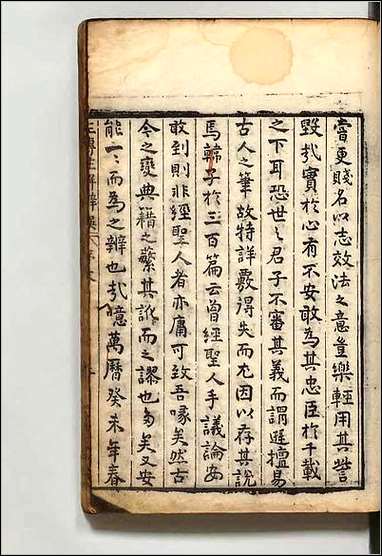 嘗更賤名以志效法之意豈樂輕用其訾
毀哉實於心有不安敢為其忠臣於千載
之下耳恐世之君子不審其義而謂遅擅易
古人之筆故特詳覈得失而尤因以存其說
焉韓子於三百篇云曾經聖人手議論安
敢到則非經聖人者亦庸可致吾喙矣然古
今之變典籍之繁其訛而之謬也多矣又安
能一一而為之辯也哉噫萬曆癸未年春